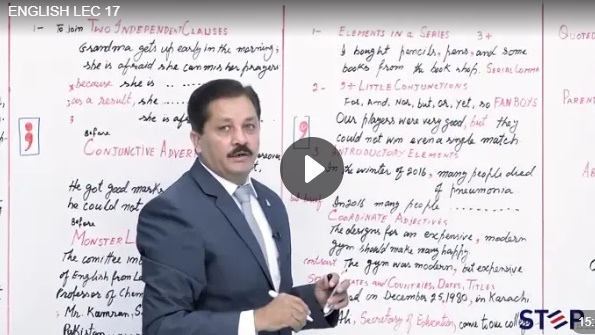 ENGLISH LEC 17
1- To join TWO INDEPENDENT CLAUSES
Grandma gets up early in the morning;
she is afraid she can miss her prayers
* because she is ..
* as a result, she ....
* she is af
;
Before
CONJUNCTIVE ADVER
He got good mark
he could not
Before
MONSTER L
The committee in
of English from La
Professor of Chem
Mr. Kamran, S
Pakistan
1- ELEMENTS IN A SERIES 3+
I bought pencils, pens, and some
books from the book shop. SERIAL COMMA
2- 5+ LITTLE CONJUNCTIONS
For, And, Nor, but, or, Yet, so FANBOYS
Our players were very good, but they
could not win even a single match
,
3 INTRODUCTORY ELEMENTS
In the winter of 2016, many people died
of pneumonia
In 2016 many people ..........
COORDINATE ADJECTIVES
The designs for an expensive, modern
gym should make many happy
contrast The gym was modern, but expensive
DATES AND COUNTRIES, DATES, TITLES
on December 25, 1980, in Karachi.
Ali, Secretary of Education, came to our
QUOTED
PAREN
STEP
15: